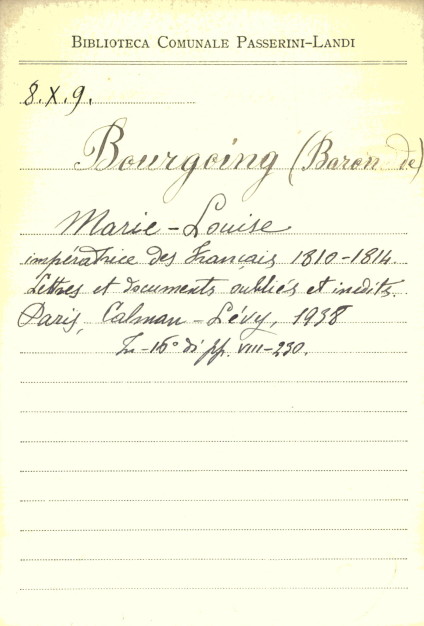 BIBLIOTECA COMUNALE PASSERINI-LANDI
8.X.9.
Bourgoing (Baron de)
Marie-Louise
impératrice des Français 1810-1814.
Lettres et documents oubliés et inédits.
Paris, Calman-Lévy, 1938
In-16° di pp. VIII-230.